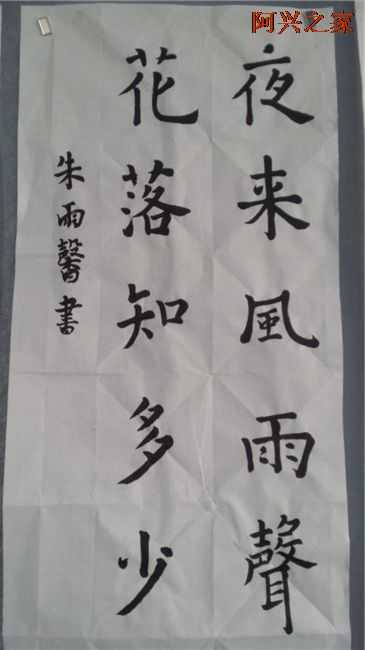 阿兴之家
夜来風雨聲
花落知多少
朱雨馨書